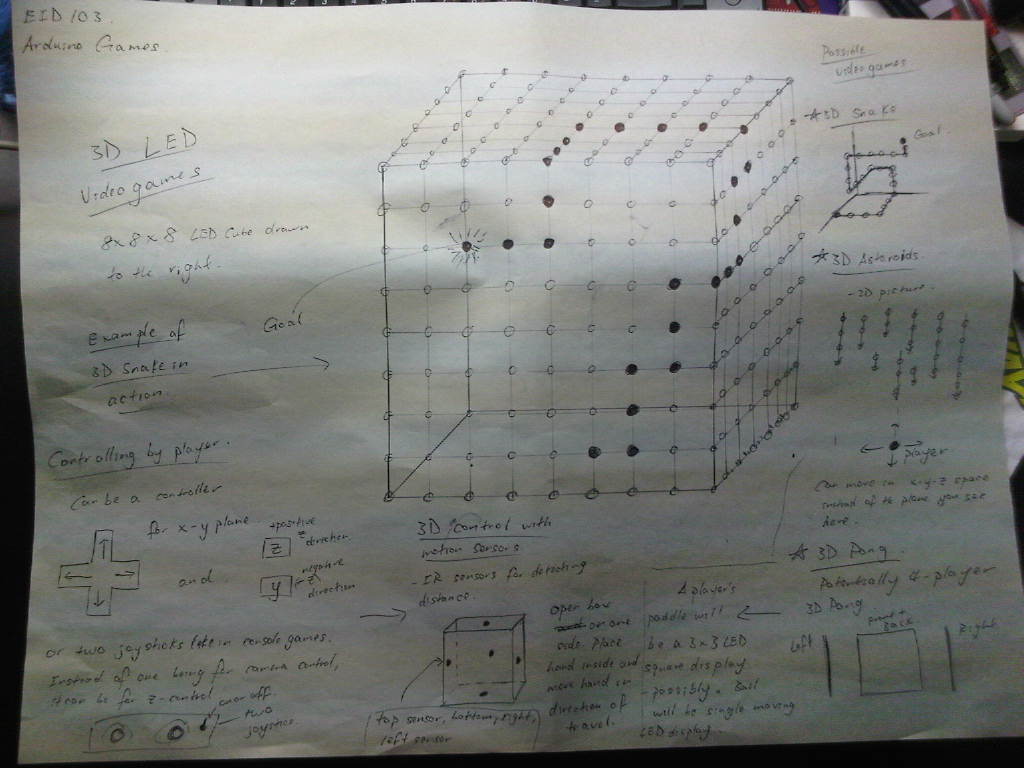 EID 103.
Arduino Games.
3D LED
Videogames
8x8x8 LED Cube drawn
to the right.
Goal
Example of
3D Snake in
action.
Controlling by player.
Can be a controller
for x-y plane
and
+positive
z direction
z
negative
z direction
y
or two joysticks like in console games.
Instead of one being for camera control,
it can be for z-control.
on or off.
two
joysticks
3D control with
motion sensors
- IR sensors for detecting
distance.
top sensor, bottom, right,
left sensor
open box
on one
side. Place
hand inside and
move hand in
direction of
travel.
A player's
paddle will
be a 3x3 LED
square display
- possibly. Ball
will be single moving
LED display.
Possible
videogames
☆3D Snake
Goal.
☆3D Asteroids.
- 3D picture.
player
Can move in x-y-z space
instead of the plane you see
here.
☆ 3D Pong.
Potentially 4-player
3D Pong
Left
front +
Back
Right